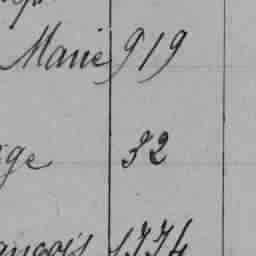 Marie 919
ge 32
ançois 1774